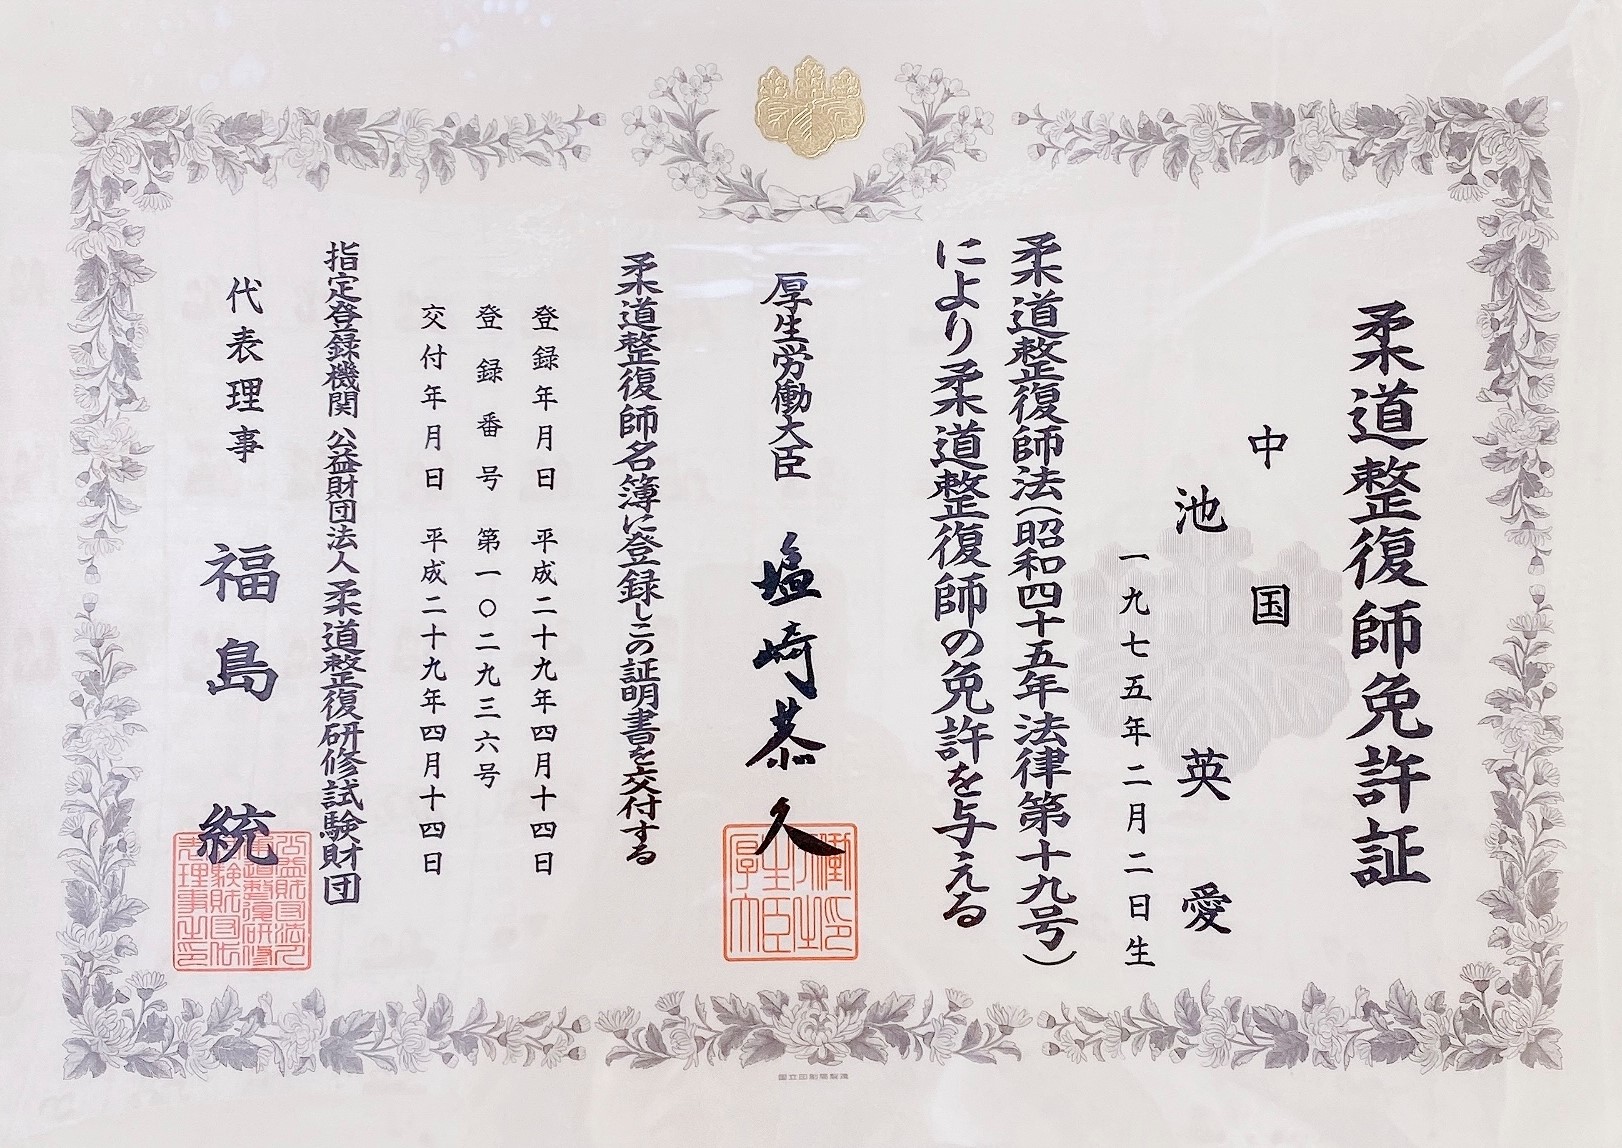 柔道整復師免許証
中国
池英愛
一九七五年二月二日生
柔道整復師法(昭和四十五年法律第十九号)
により柔道整復師の免許を与える
厚生労働大臣 塩崎恭久
柔道整復師名簿に登録しこの証明書を交付する
登録年月日 平成二十九年四月十四日
登録番号 第一〇二九三六号
交付年月日 平成二十九年四月十四日
指定登録機関 公益財団法人 柔道整復研修試験財団
代表理事 福島統